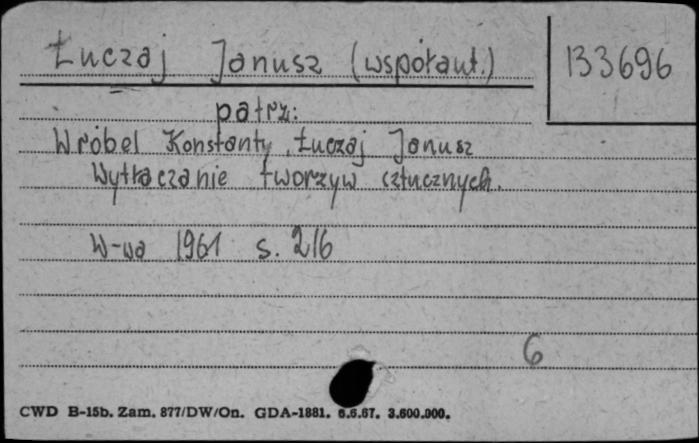 Łuczaj Janusz (współaut.) 133696
patrz:
Wróbel Konstanty, Łuczaj Janusz
Wytłaczanie tworzyw sztucznych.
W-wa 1961 s. 216
6
CWD B-15b. Zam. 877/DW/On. GDA-1881. 6.6.67. 3.600.000.